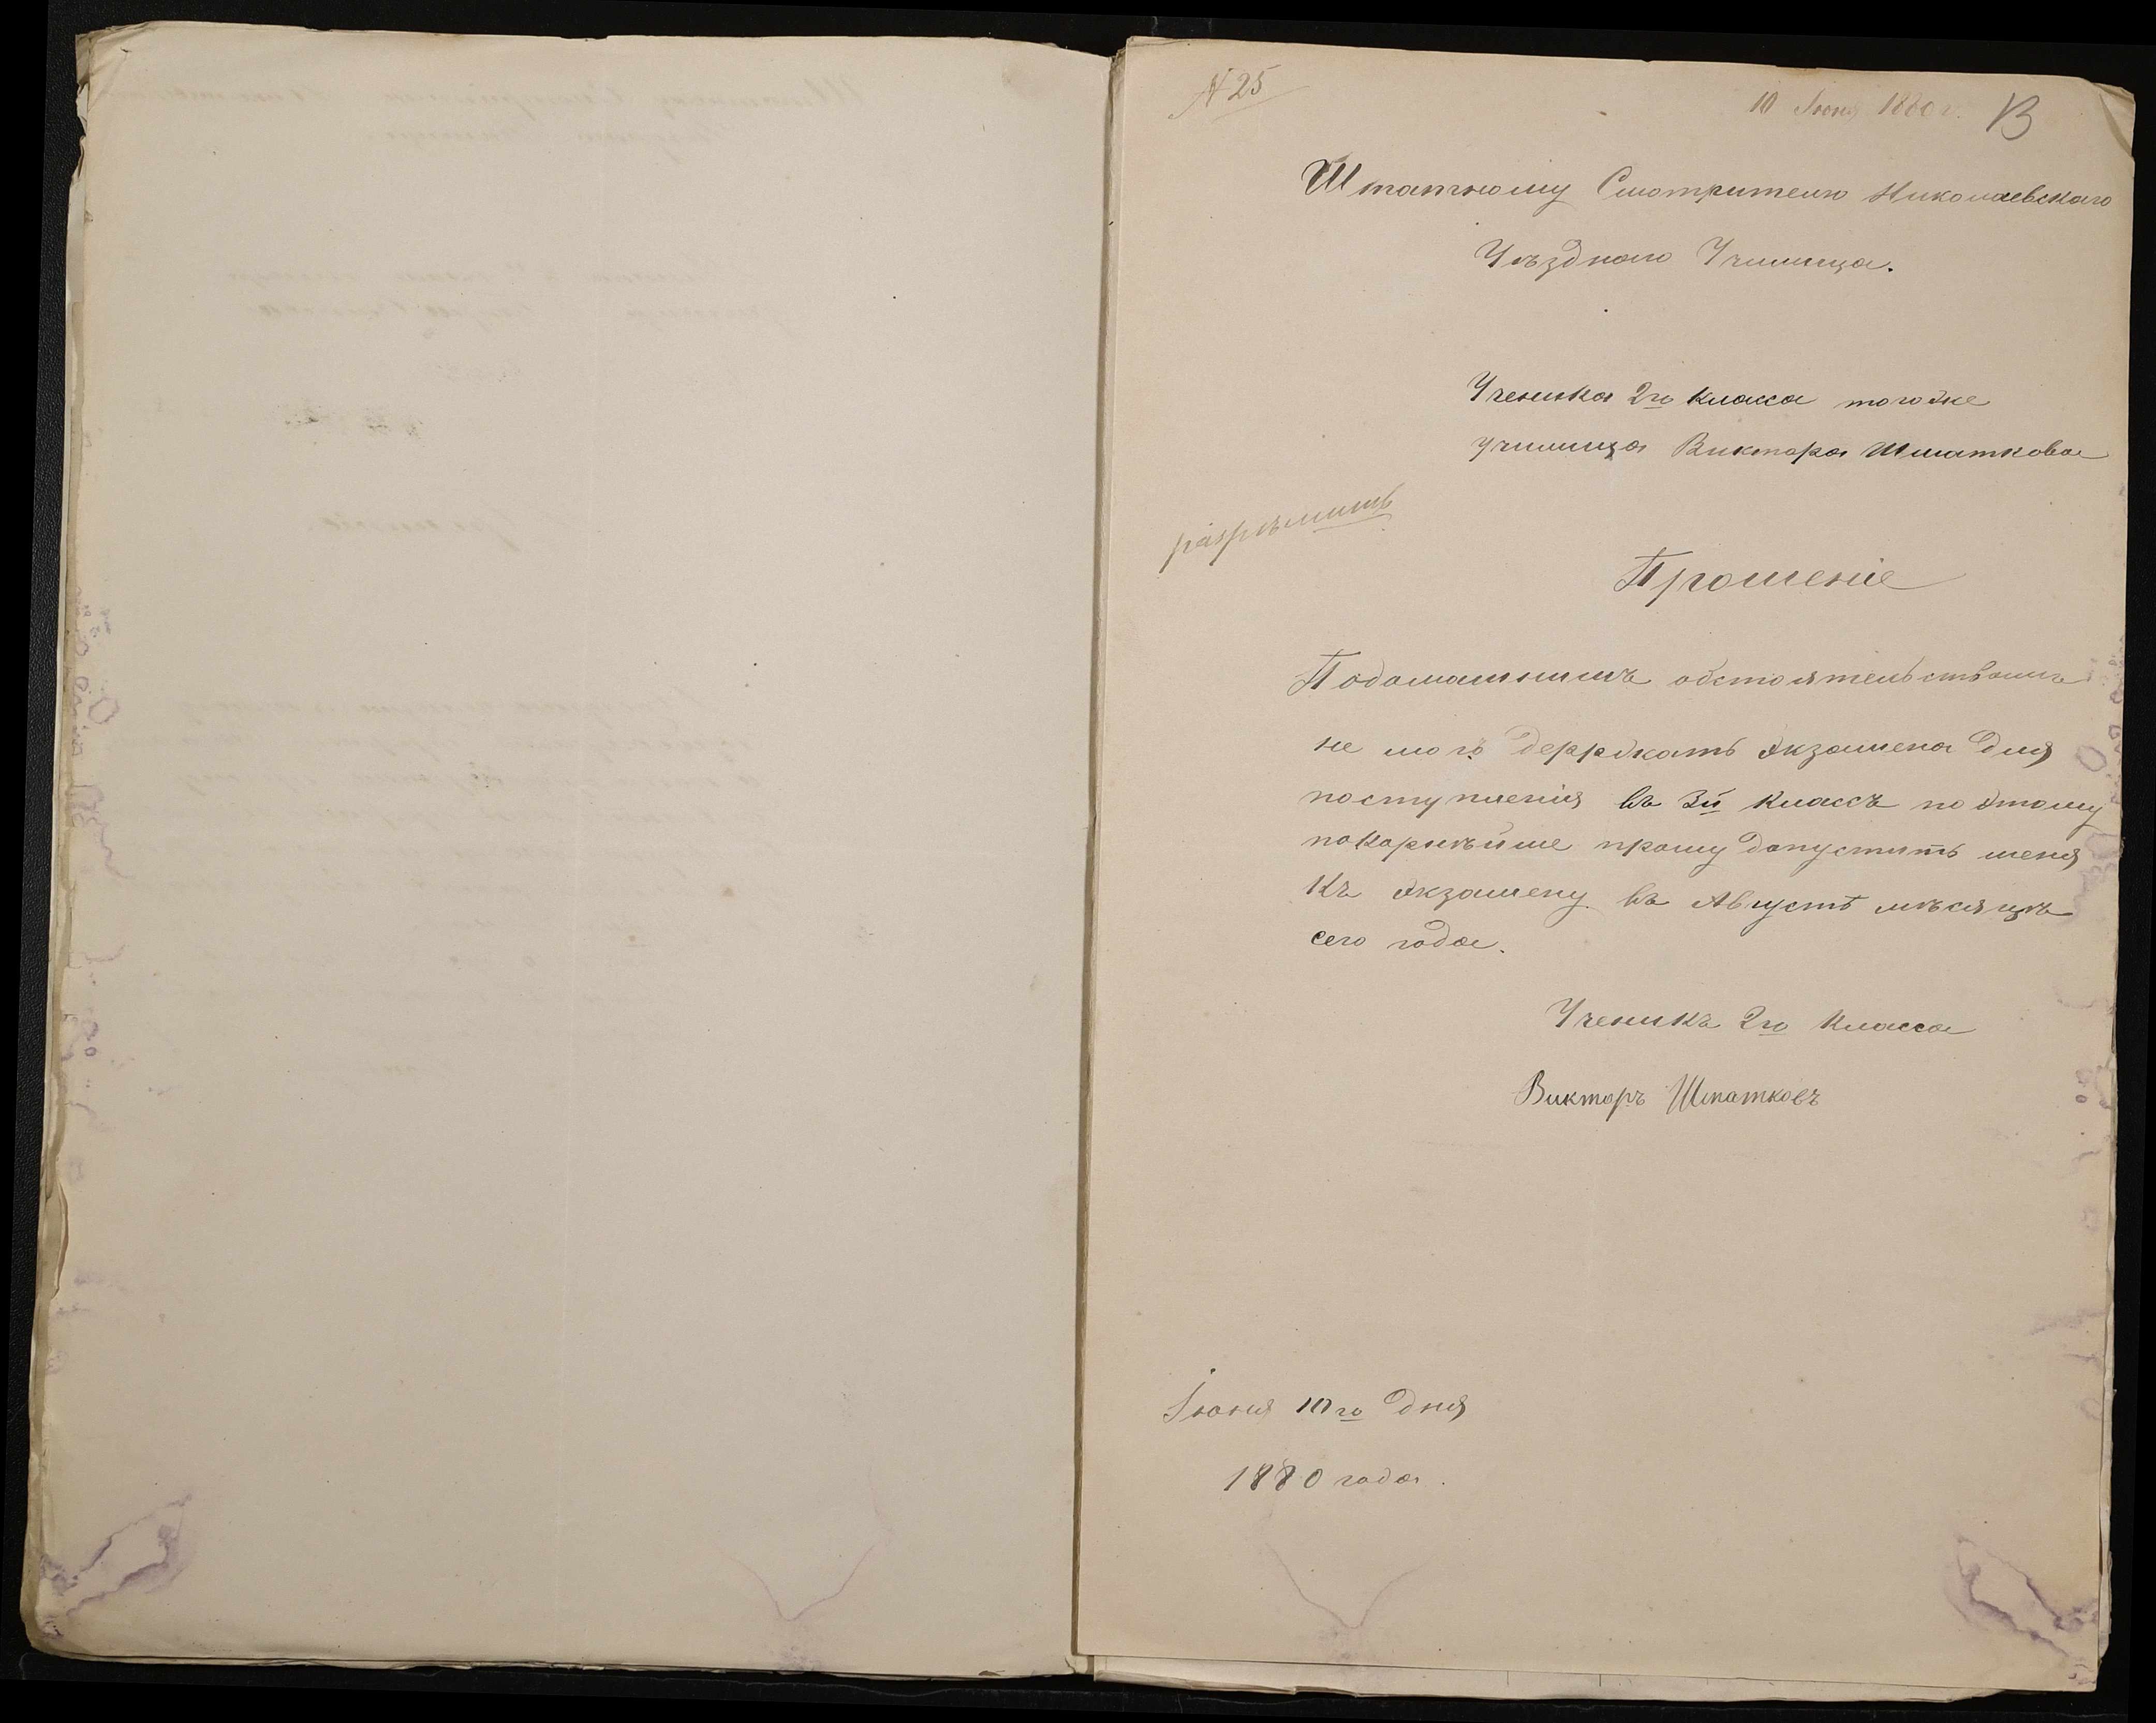 № 25
10 Июня 1880 г.
13
Штатному Смотрителю Николаевскаго
Уѣзднаго Училища.
Ученика 2го класса тогоже
училища Виктора Шматкова
разрѣшить
Прошеніе
Подомашнимъ обстоятельствамъ
не могъ держкать экзамена для
поступленія въ 3й классъ по этому
покорнѣйше прошу допустить меня
къ экзамену въ Августѣ мѣсяцѣ
сего года.
Ученикъ 2го класса
Викторъ Шматковъ
Іюня 10го дня
1880 года.